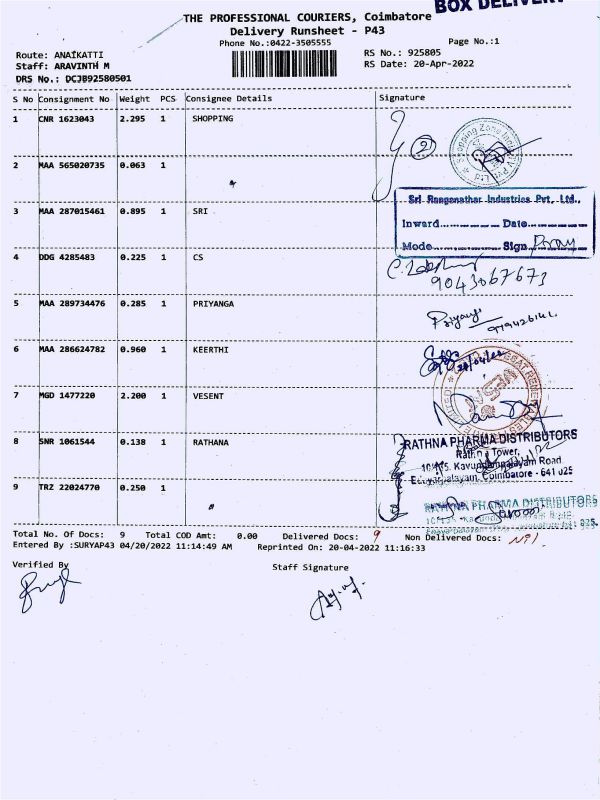 BOX DELIVERY
THE PROFESSIONAL COURIERS, Coimbatore
Delivery Runsheet - P43
Phone No.:0422-3505555
Page No.:1
Route: ANAIKATTI
RS No.: 925805
Staff: ARAVINTH M
RS Date: 20-Apr-2022
DRS No.: DCJB92580501
S No Consignment No Weight PCS Consignee Details Signature
1 CNR 1623043 2.295 1 SHOPPING
2
2 MAA 565020735 0.063 1
Sri Ranganathar Industries Pvt. Ltd.,
3 MAA 287015461 0.895 1 SRI
Inward........... Date...........
Mode........... Sign
4 DDG 4285483 0.225 1 CS
9043067673
5 MAA 289734476 0.285 1 PRIYANGA
Priyanga
6 MAA 286624782 0.960 1 KEERTHI
7 MGD 1477220 2.200 1 VESENT
8 SNR 1061544 0.138 1 RATHANA
RATHNA PHARMA DISTRIBUTORS
Rathna Tower,
Kavundampalayam Road
Coimbatore - 641 025
9 TRZ 22024770 0.250 1
RATHNA PHARMA DISTRIBUTORS
Total No. Of Docs: 9 Total COD Amt: 0.00 Delivered Docs: 9 Non Delivered Docs: Nil
Entered By :SURYAP43 04/20/2022 11:14:49 AM Reprinted On: 20-04-2022 11:16:33
Verified By
Staff Signature